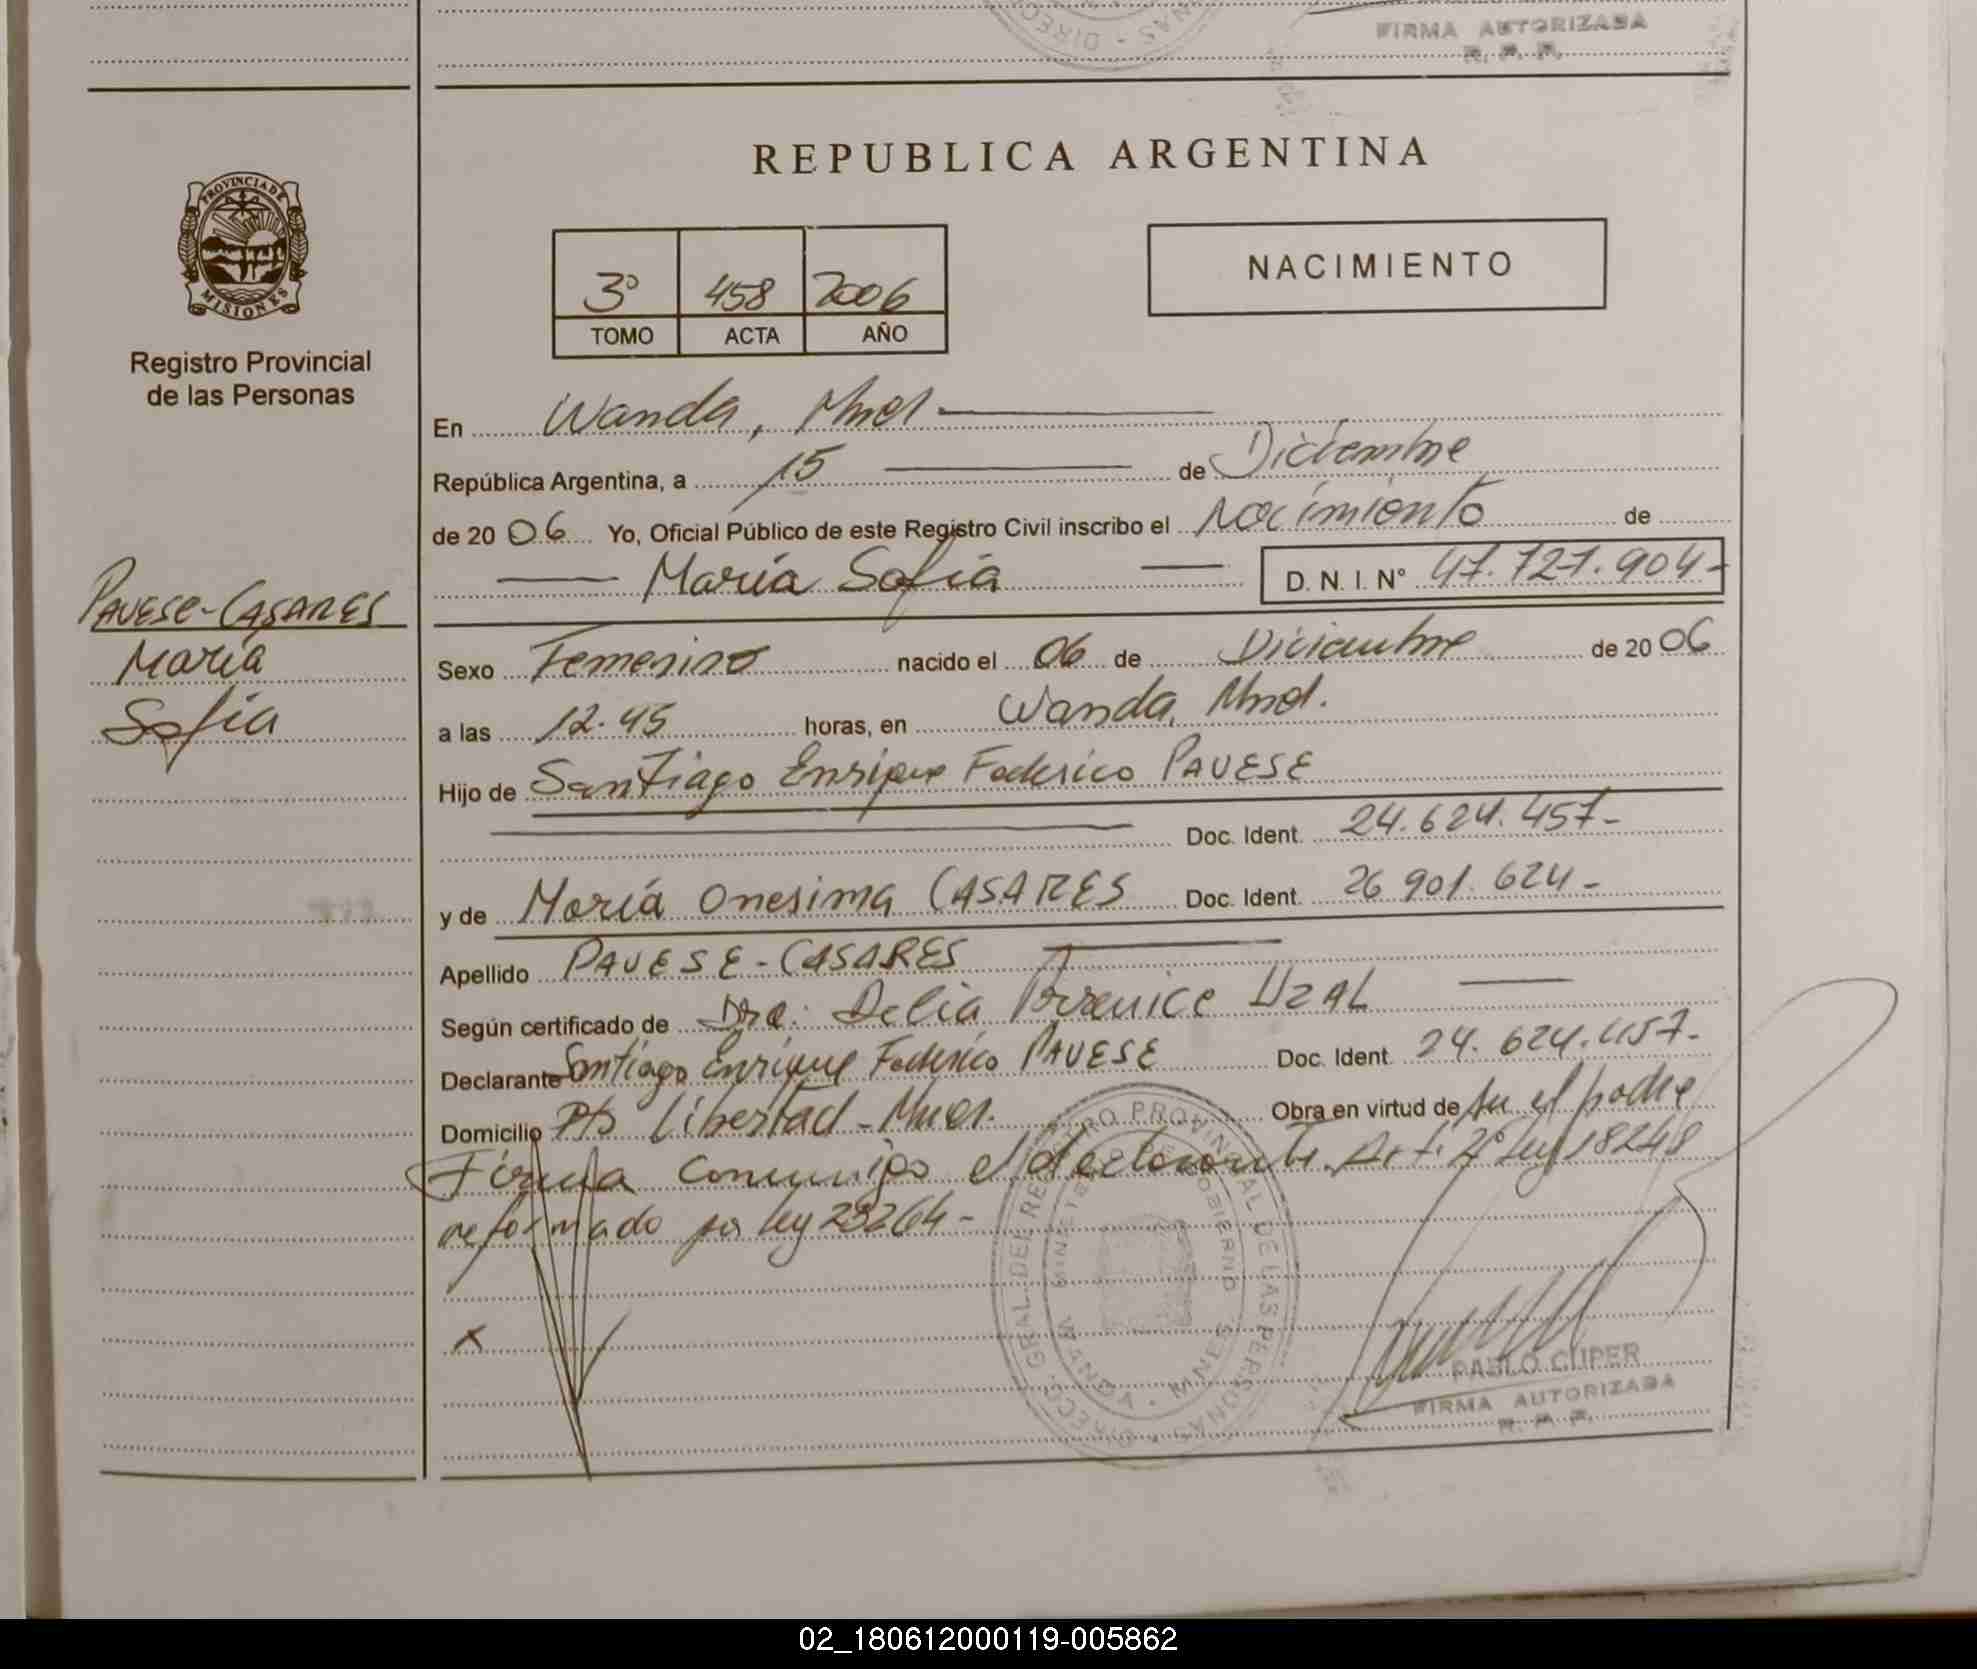 FIRMA AUTORIZADA
R. P. P.
REPUBLICA ARGENTINA
PROVINCIA DE MISIONES
Registro Provincial
de las Personas
3° 458 2006
TOMO ACTA AÑO
NACIMIENTO
En Wanda, Mnes
República Argentina, a 15 de Diciembre
de 2006 Yo, Oficial Público de este Registro Civil inscribo el Nacimiento de
María Sofía D. N. I. N° 47.727.904-
PAVESE-CASARES
María
Sofía
Sexo Femenino nacido el 06 de Diciembre de 2006
a las 12.45 horas, en Wanda, Mnes.
Hijo de Santiago Enrique Federico PAVESE
Doc. Ident. 24.624.457-
y de María Onesima CASARES Doc. Ident. 26.901.624-
Apellido PAVESE-CASARES
Según certificado de Dra. Delia UZAL
Declarante Santiago Enrique Federico PAVESE Doc. Ident. 24.624.457-
Domicilio Pto Libertad-Mnes. Obra en virtud de ser el padre
Firma conmigo el declarante. Art. 2° Ley 18248
reformado por ley 23264-
x
DIRECC. GRAL. DEL REGISTRO PROVINCIAL DE LAS PERSONAS
MINISTERIO DE GOBIERNO
WANDA - MNES
PABLO CUPER
FIRMA AUTORIZADA
R. P. P.
02_180612000119-005862